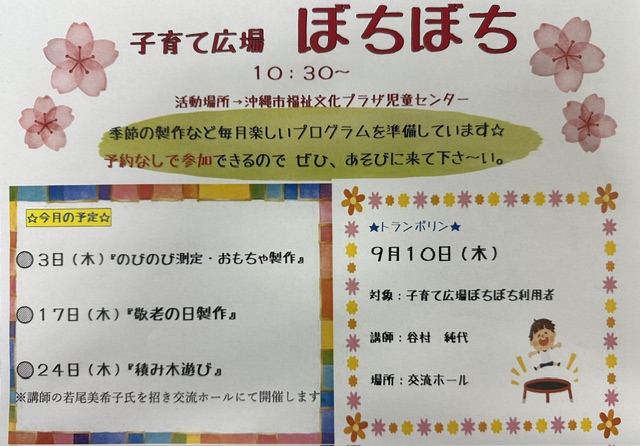 子育て広場 ぼちぼち
10:30～
活動場所→沖縄市福祉文化プラザ児童センター
季節の製作など毎月楽しいプログラムを準備しています☆
予約なしで参加できるので ぜひ、あそびに来て下さ～い。
☆今月の予定☆
◎3日(木)『のびのび測定・おもちゃ製作』
◎17日(木)『敬老の日製作』
◎24日(木)『積み木遊び』
※講師の若尾美希子氏を招き交流ホールにて開催します
★トランポリン★
9月10日(木)
対象:子育て広場ぼちぼち利用者
講師:谷村 純代
場所:交流ホール